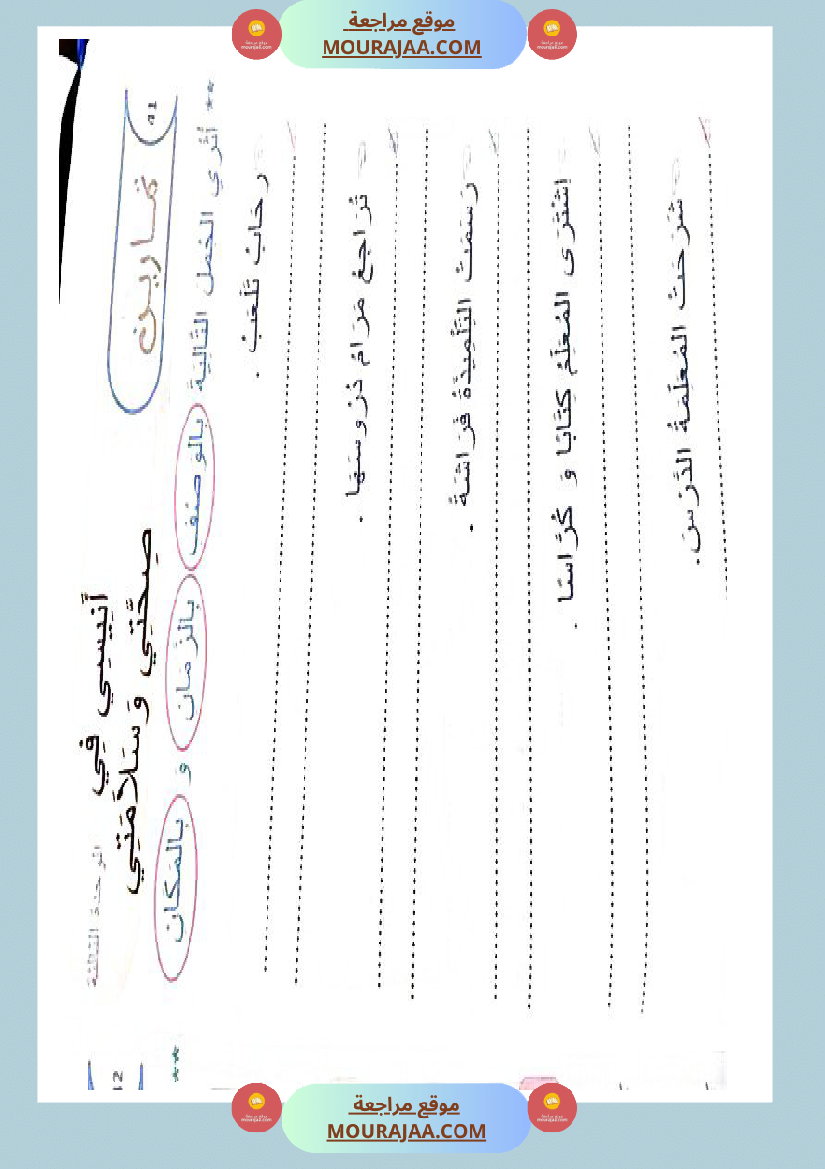 موقع مراجعة
MOURAJAA.COM
الوحدة الثالثة
أَنِيسِي فِي
صِحَّتِي وَسَلَامَتِي
تمارين
41
** أُثْرِي الجُمَل التَّالِيَة بالوَصْف بالزَّمَان و بالمَكَان
رِحَابُ تَلْعَبُ .
تُرَاجِعُ مَرَامُ دُرُوسَهَا .
رَسَمَتْ التِّلْمِيذَةُ فَرَاشَةً .
اشْتَرَى المُعَلِّمُ كِتَابًا وَ كُرَّاسًا .
شَرَحَتْ المُعَلِّمَةُ الدَّرْسَ.
12
**
موقع مراجعة
MOURAJAA.COM